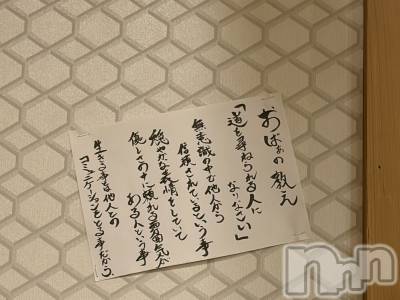 おばぁの教え
「道を尋ねられる人に
なりなさい」
無意識の中で他人から
信頼されているという事
穏やかな表情をしていて
優しさの中に頼れる雰囲気が
ある人という事
生きる事は他人との
コミュニケーションをとる事だから。
nnn